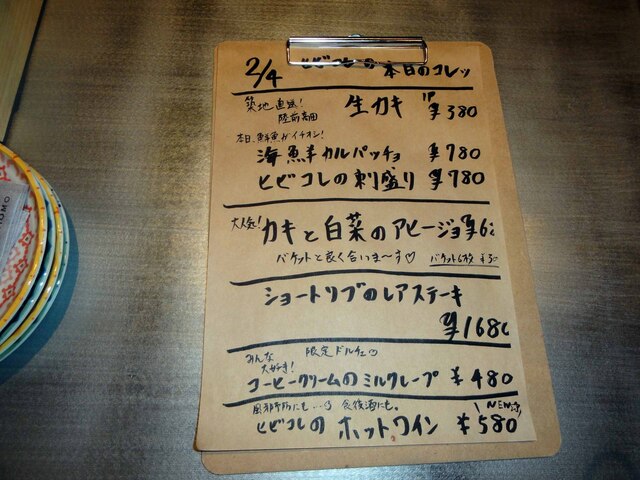 2/4 ヒビコレの本日のコレッ
築地直送!
陸前高田
生カキ 1P ¥380
本日、鮮魚がイチオシ!
海鮮カルパッチョ ¥780
ヒビコレの刺盛り ¥780
大人気!
カキと白菜のアヒージョ ¥6
バケットと良く合いま～す♡ バケット6枚
ショートリブのレアステーキ
¥168
みんな
大好き!
限定ドルチェ♡
コーヒークリームのミルクレープ ¥480
風邪予防にも…♪ 食後酒にも。
NEW
ヒビコレの ホットワイン ¥580
OMO